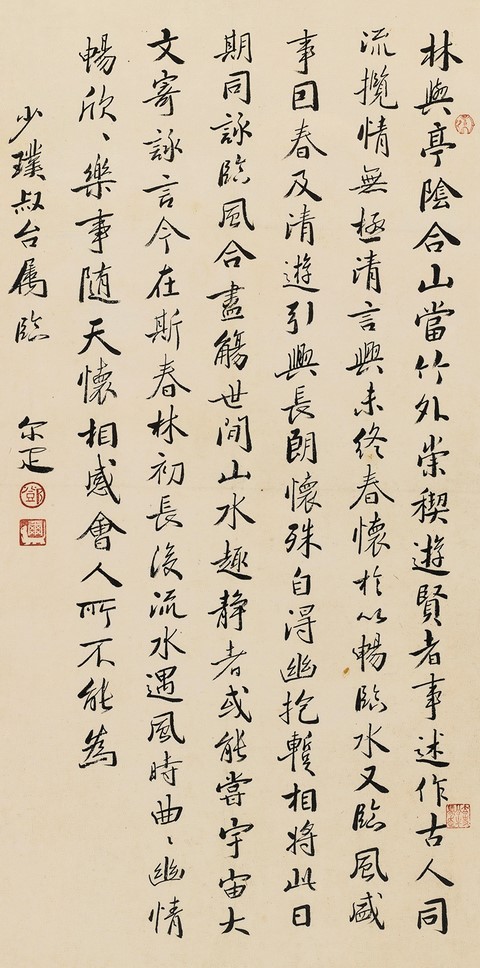 林與亭陰合山當竹外崇稧遊賢者事述作古人同
流攬情無極清言興未終春懷於以暢臨水又臨風感
事因春及清遊引興長朗懷殊自淂幽抱暫相將此日
期同詠臨風合盡觴世間山水趣靜者或能嘗宇宙大
文寄詠言今在斯春林初長後流水遇風時曲〻幽情
暢欣〻樂事隨天懷相感會人所不能為
少璞叔台屬臨 尔疋
鄧